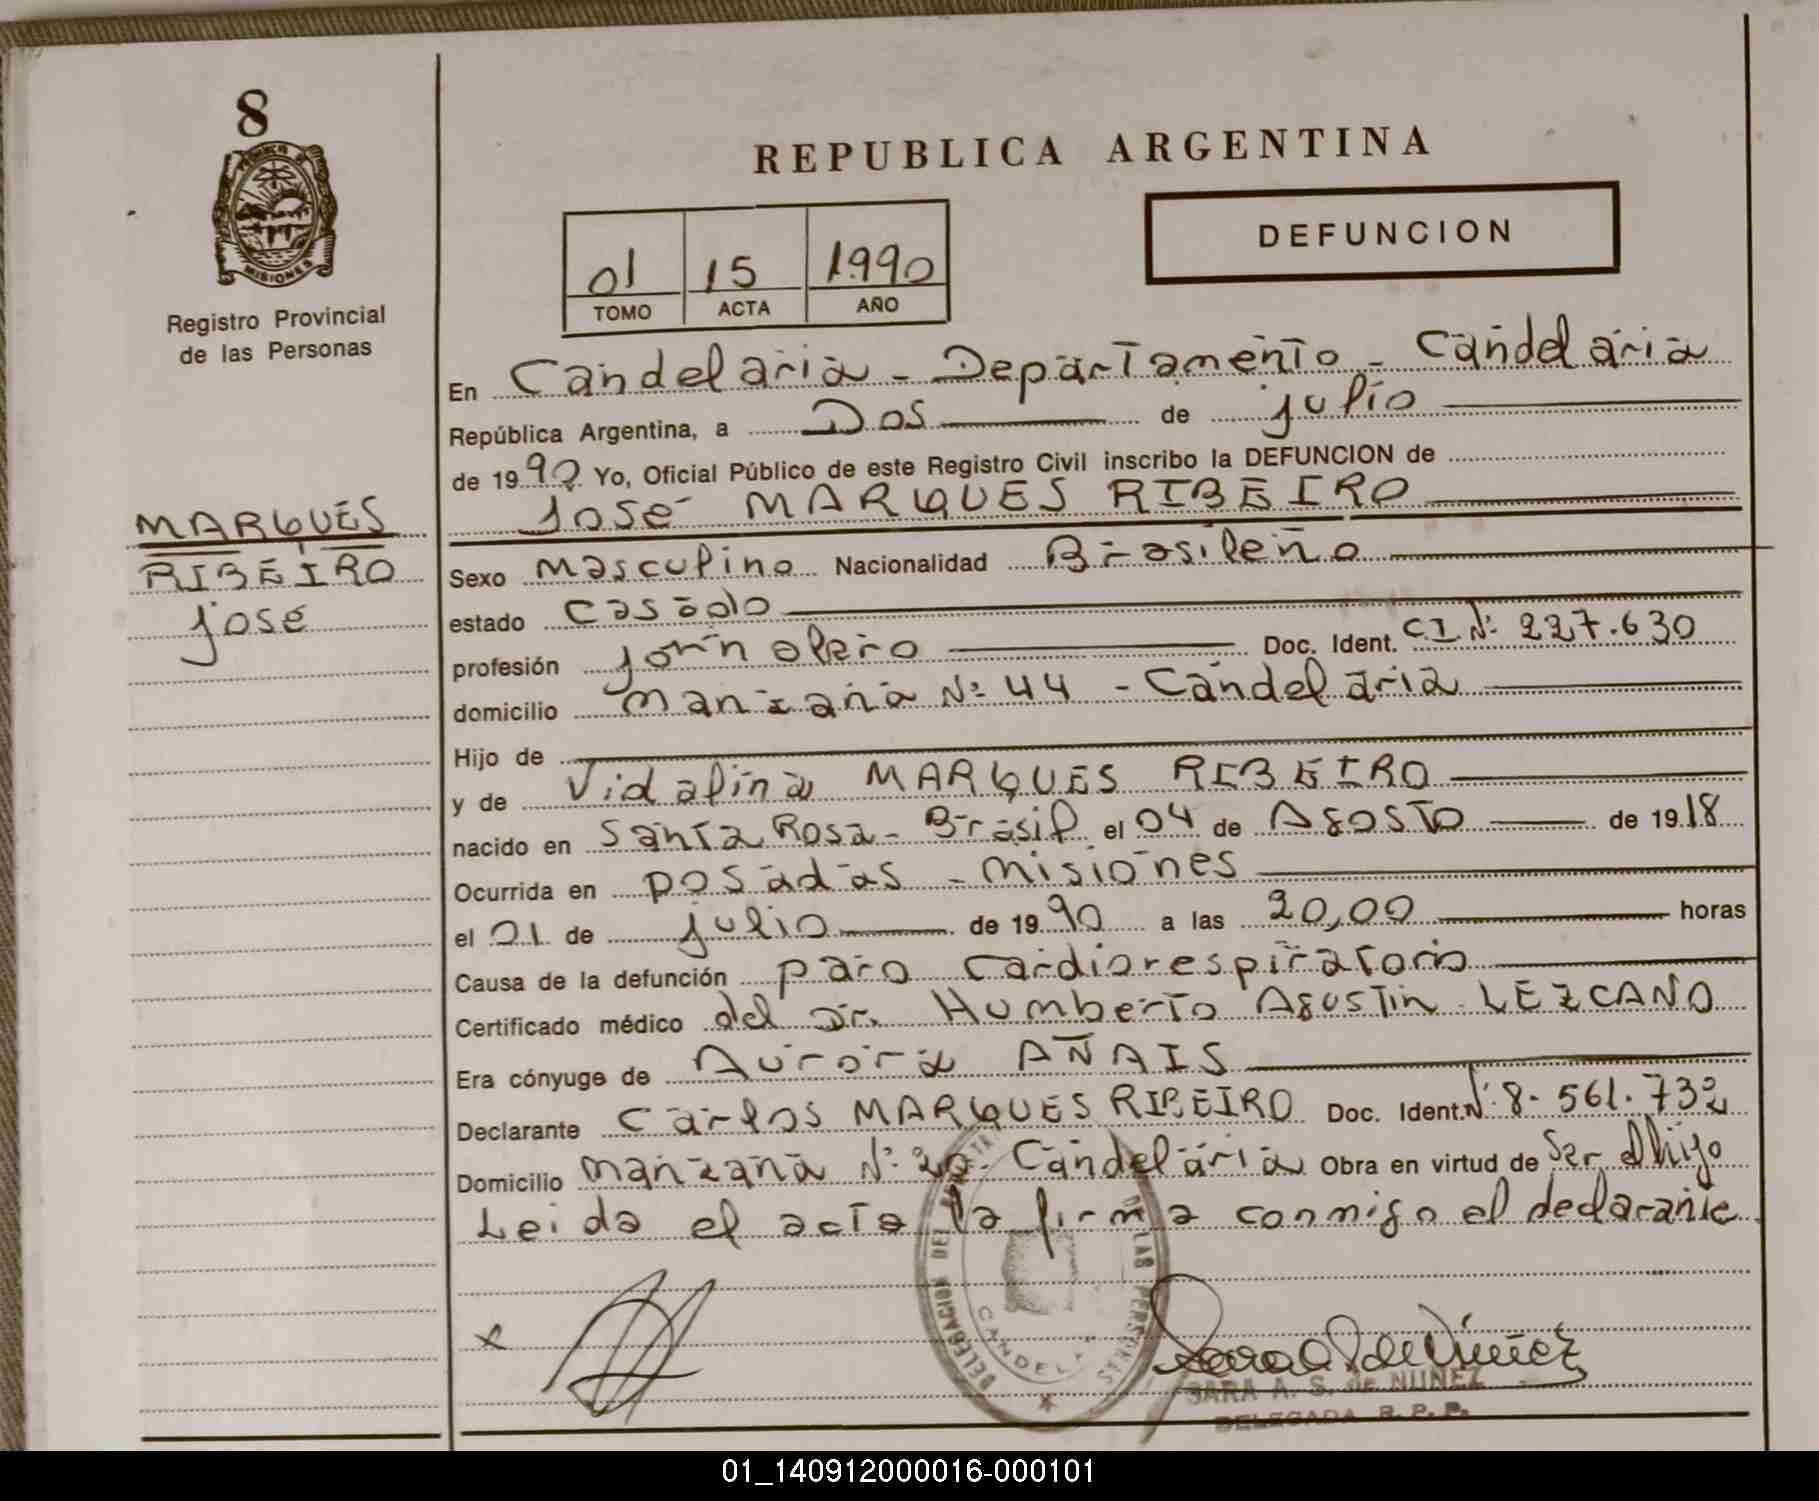 8
MISIONES
Registro Provincial
de las Personas
REPUBLICA ARGENTINA
DEFUNCION
01 15 1990
TOMO ACTA AÑO
En Candelaria - Departamento - Candelaria
República Argentina, a Dos de julio
de 1990 Yo, Oficial Público de este Registro Civil inscribo la DEFUNCION de
José MARQUES RIBEIRO
MARQUES
RIBEIRO
José
Sexo Masculino Nacionalidad Brasileño
estado Casado
profesión Jornalero Doc. Ident. CI Nº 227.630
domicilio Manzana Nº 44 - Candelaria
Hijo de
y de Vidalina MARQUES RIBEIRO
nacido en Santa Rosa - Brasil el 04 de Agosto de 1918
Ocurrida en posadas - Misiones
el 01 de julio de 1990 a las 20,00 horas
Causa de la defunción paro Cardiorespiratorio
Certificado médico del Dr. Humberto Agustin LEZCANO
Era cónyuge de Aurora AÑAIS
Declarante Carlos MARQUES RIBEIRO Doc. Ident. Nº 8.561.732
Domicilio Manzana Nº 20 - Candelaria Obra en virtud de Ser el hijo
Leida el acta la firma conmigo el declarante
DELEGACION DEL LAS PERSONAS
CANDELA
SARA A. S. de NUÑEZ
DELEGADA R. P. P.
01_140912000016-000101